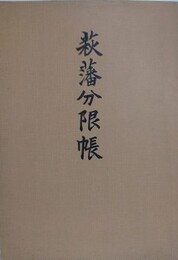 萩藩分限帳